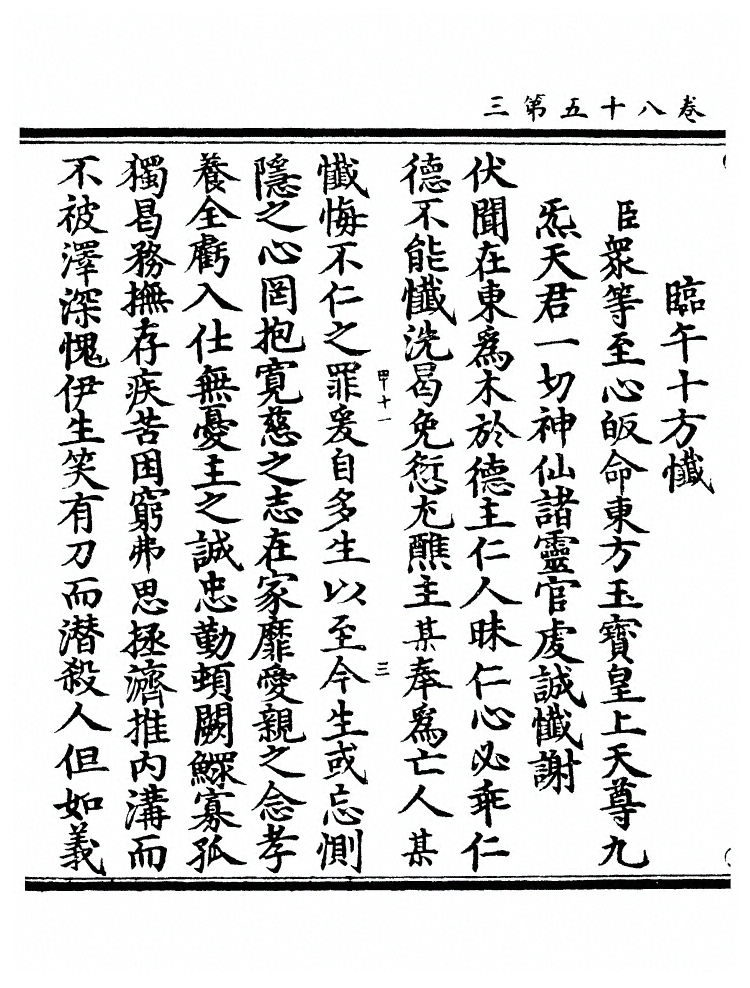 卷八十五第三
臨午十方懺
臣衆等至心皈命東方玉寶皇上天尊九
炁天君一切神仙諸靈官虔誠懺謝
伏聞在東爲木於德主仁人昧仁心必乖仁
德不能懺洗曷免愆尤醮主某奉爲亡人某
甲十一
三
懺悔不仁之罪爰自多生以至今生或忘惻
隱之心罔抱寬慈之志在家靡愛親之念孝
養全虧入仕無憂主之誠忠勤頓闕鰥寡孤
獨曷務撫存疾苦困窮弗思拯濟推内溝而
不被澤深愧伊生笑有刀而潜殺人但如義